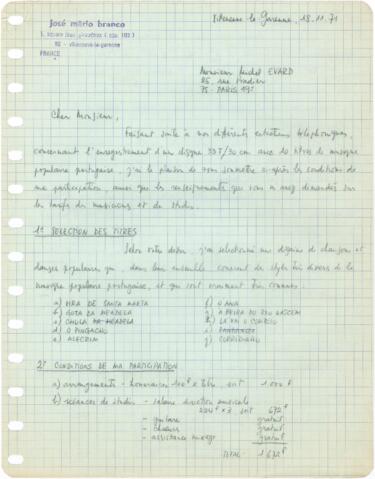 José mário branco
92 - villeneuve-la-garenne
FRANCE
Villeneuve-la-Garenne, 18.11.71
Monsieur Michel EVARD
75 - PARIS 19e
Cher Monsieur,
Faisant suite à nos différents entretiens téléphoniques,
concernant l'enregistrement d'un disque 33T/30 cm avec 10 titres de musique
populaire portugaise, j'ai le plaisir de vous soumettre ci-après les conditions de
ma participation, ainsi que les renseignements que vous m'avez demandés sur
les tarifs des musiciens et du studio.
1º SELECTION DES TITRES
Selon votre désir, j'ai sélectionné une dizaine de chansons et
danses populaires qui, dans leur ensemble, couvrent des styles très divers de la
musique populaire portugaise, et qui sont vraiment très connus:
a) VIRA DE SANTA MARTA
b) GOTA DA MEADELA
c) CHULA
d) O PINGACHO
e) ALECRIM
f) O ANA
g)
h) LÁ VAI O COMBOIO
i)
j) CORRIDINHO
2º CONDITIONS DE MA PARTICIPATION
a) arrangements - honoraires 100F x titre soit 1.000F
b) séances de studio - salaire direction musicale
224F x 3 soit 672F
- guitare gratuit
- choeurs gratuit
- assistance mixage gratuit
TOTAL 1.672F